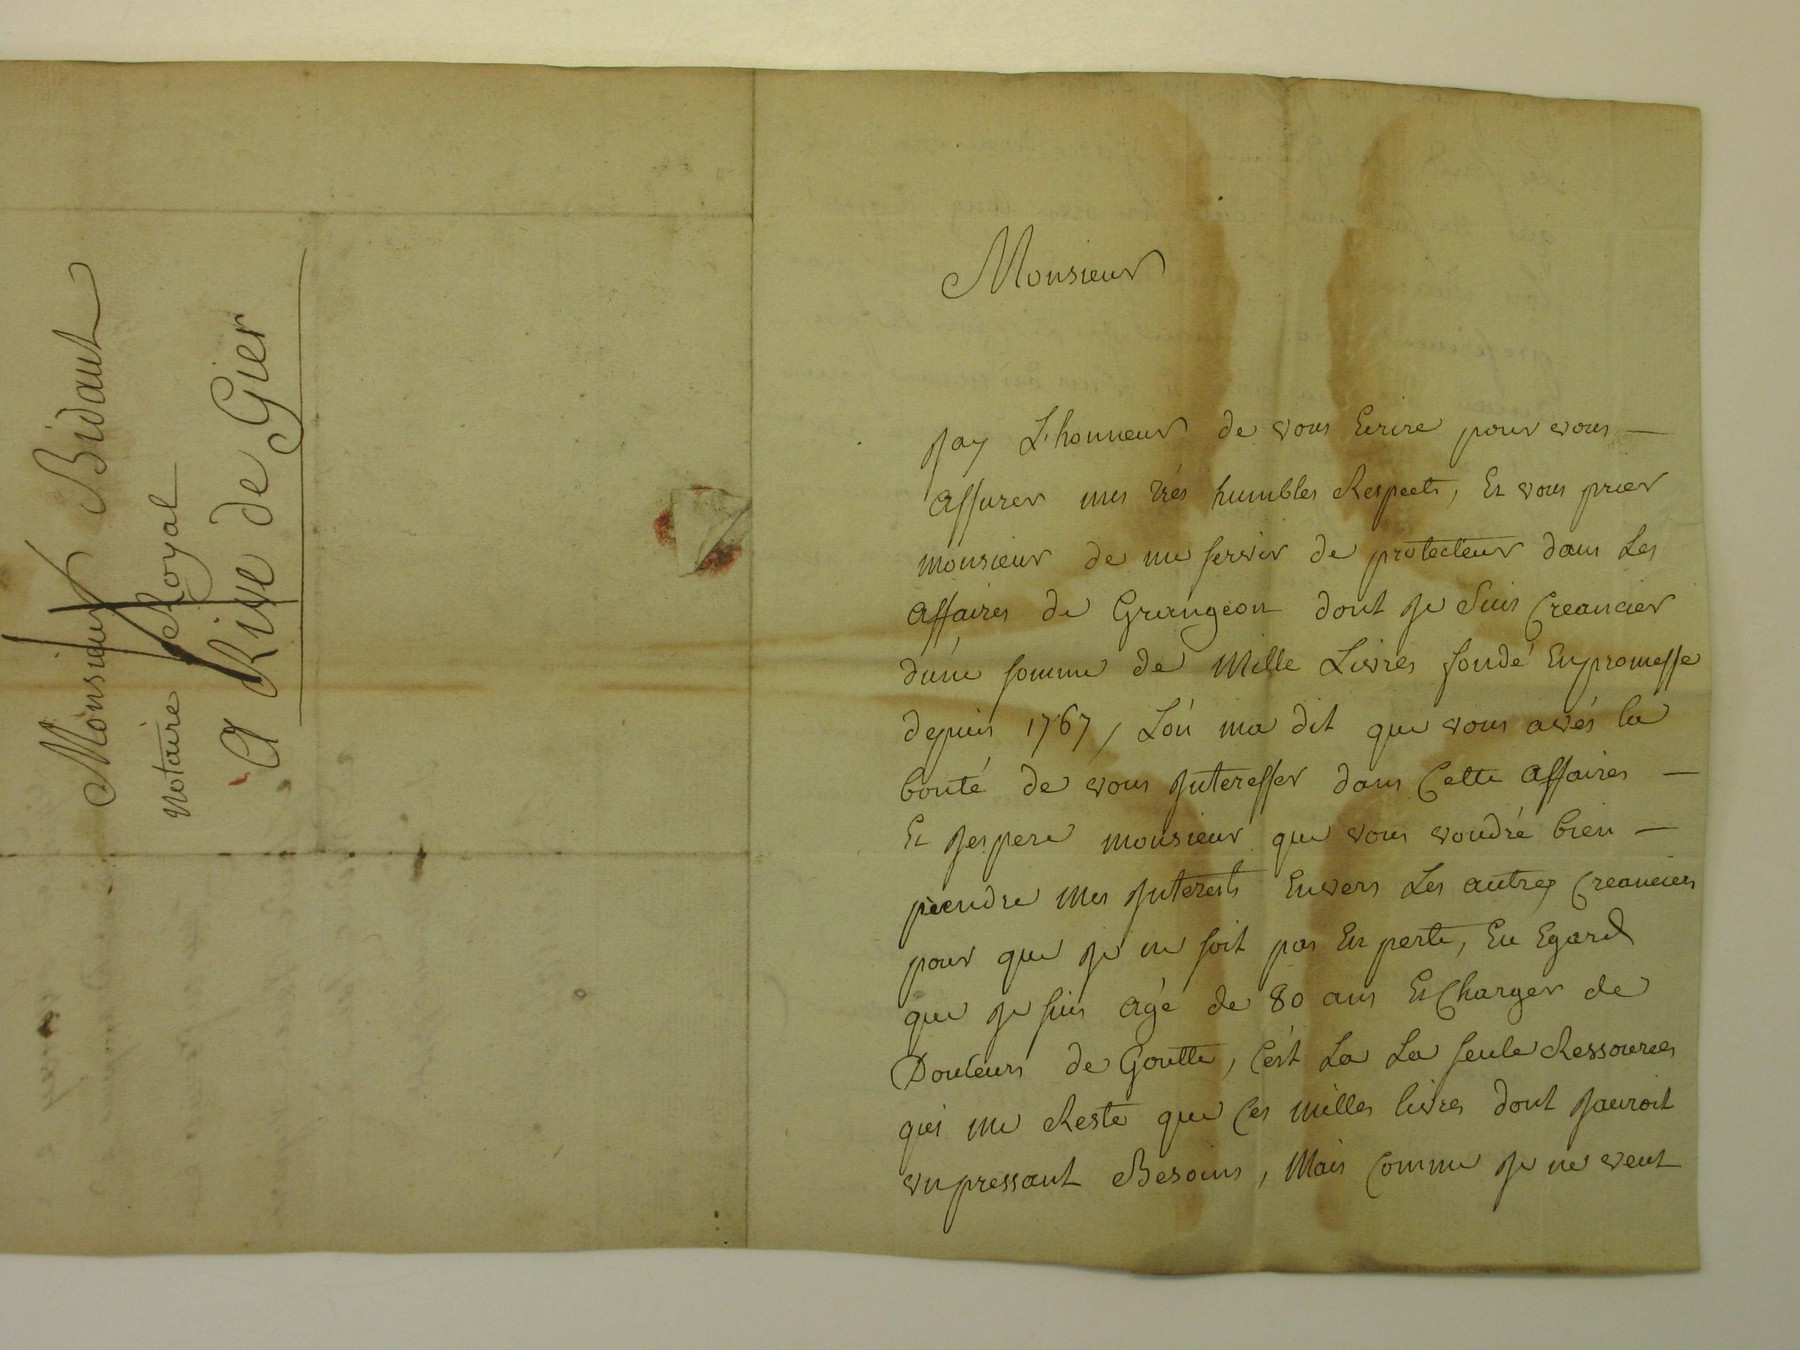 Monsieur Bidault
Notaire Royal
A Rive de Gier
Monsieur
Jay L'honneur de vous Ecrire pour vous —
assurer mes trés humbles Respects, Et vous prier
monsieur de me servir de protecteur dans Les
affaires de Grangeon dont Je Suis Creancier
dune somme de Mille Livres fondé En promesse
depuis 1767, Lon ma dit que vous avés la
bonté de vous Interesser dans Cette affaires —
Et Jespere monsieur que vous voudré bien —
prendre Mes Interests Envers Les autres Creanciers
pour que Je ne soit pas En perte, Eu Egard
que Je suis agé de 80 ans Et Charger de
Douleurs de Goutte, C'est La La seule Ressources
qui me Reste que Ces milles livres dont Jauroit
un pressant Besoins, Mais Comme Je ne veut